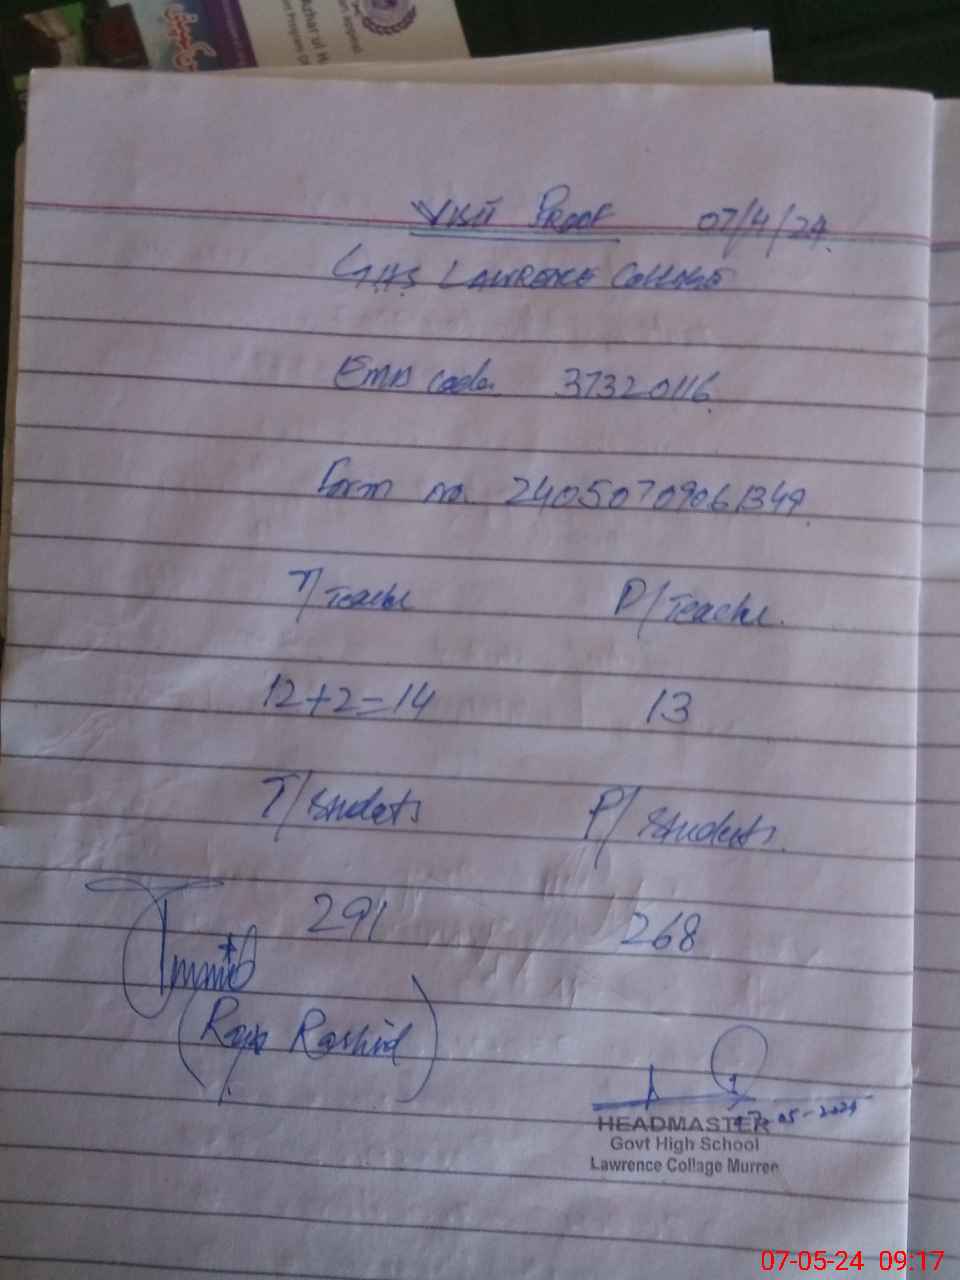 VISIT PROOF 07/4/24.
GHS LAWRENCE COLLEGE
EMIS code. 37320116.
Form no. 24050709061349.
T/Teacher P/Teacher.
12+2=14 13
T/students P/students.
291 268
(Raja Rashid)
07-05-2024
HEADMASTER
Govt High School
Lawrence Collage Murree
07-05-24 09:17